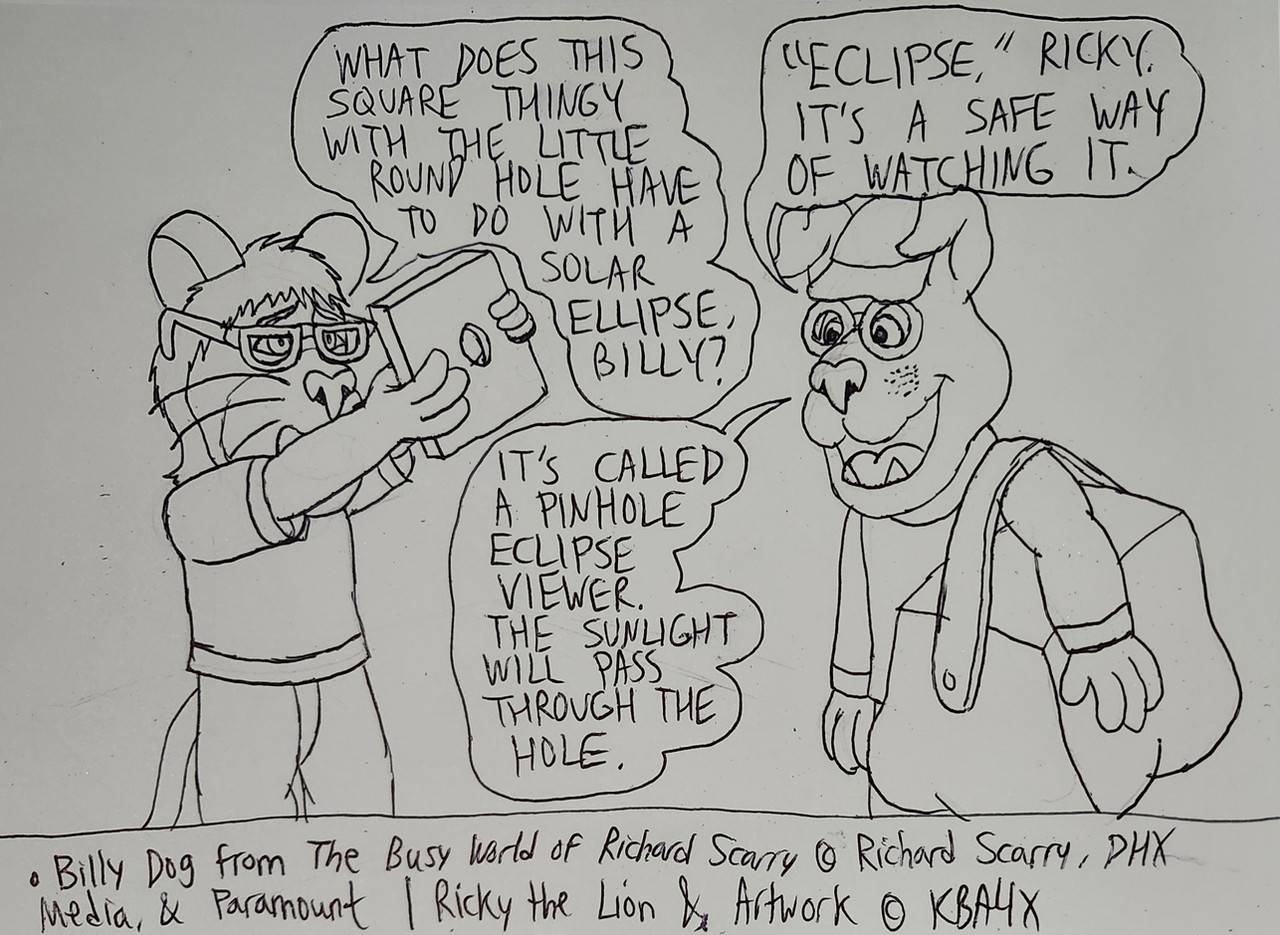 WHAT DOES THIS
SQUARE THINGY
WITH THE LITTLE
ROUND HOLE HAVE
TO DO WITH A
SOLAR
ELLIPSE,
BILLY?
"ECLIPSE," RICKY.
IT'S A SAFE WAY
OF WATCHING IT.
IT'S CALLED
A PINHOLE
ECLIPSE
VIEWER.
THE SUNLIGHT
WILL PASS
THROUGH THE
HOLE.
• Billy Dog from The Busy World of Richard Scarry © Richard Scarry, DHX
Media, & Paramount | Ricky the Lion & Artwork © KBA4X